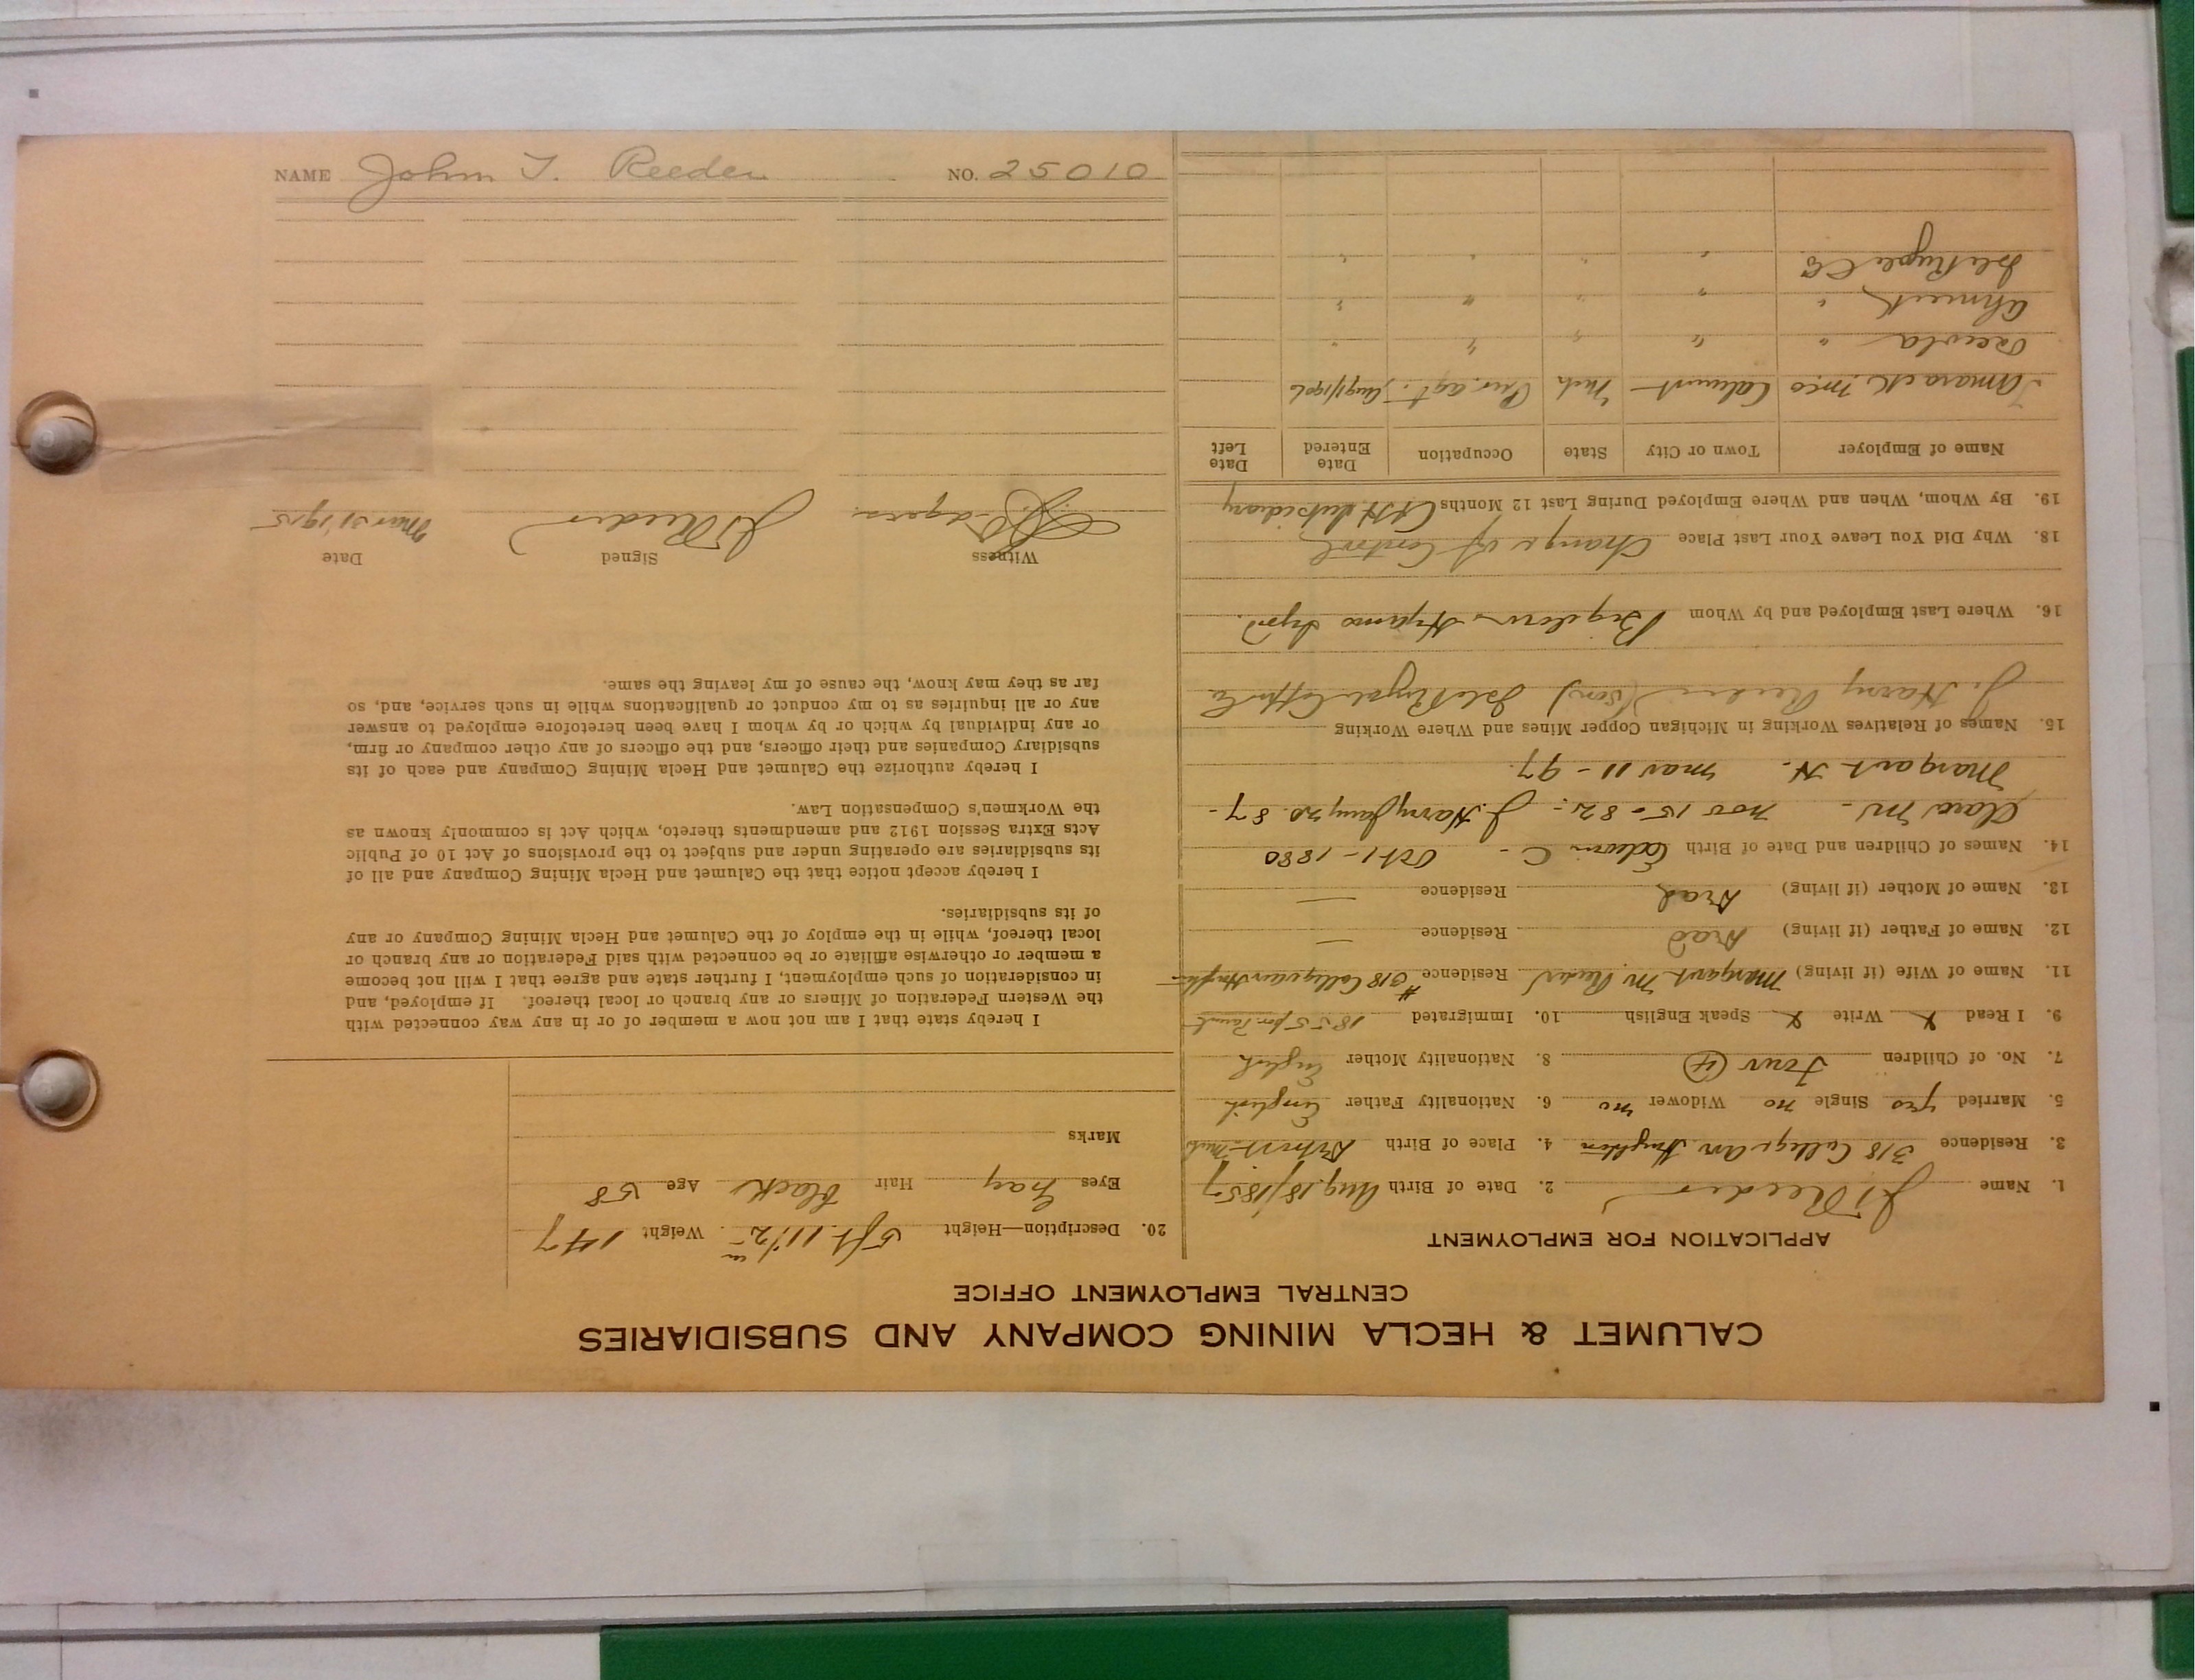 CALUMET & HECLA MINING COMPANY AND SUBSIDIARIES
CENTRAL EMPLOYMENT OFFICE
APPLICATION FOR EMPLOYMENT
1. Name J T Reeder 2. Date of Birth Aug. 18/1857
3. Residence 318 College Av Houghton 4. Place of Birth Detroit Mich
5. Married Yes Single no Widower no 6. Nationality Father English
7. No. of Children Four (4) 8. Nationality Mother English
9. I Read X Write X Speak English 10. Immigrated 1855 for Parents
11. Name of Wife (if living) Margaret M Reeder Residence #318 College Ave Houghton
12. Name of Father (if living) Dead Residence —
13. Name of Mother (if living) Dead Residence —
14. Names of Children and Date of Birth Edwin C - Oct 1 - 1880
Clara M - Nov 15 - 82 - J. Harry Jany 20. 87 -
Margaret N. Mar 11 - 97.
15. Names of Relatives Working in Michigan Copper Mines and Where Working
J. Harry Reeder (son) Isle Royale Copper Co
16. Where Last Employed and by Whom Bigelow Hyams Synd.
18. Why Did You Leave Your Last Place Change of Control
19. By Whom, When and Where Employed During Last 12 Months C&H subsidiary
Name of Employer Town or City State Occupation Date Entered Date Left
Tamarack M Co Calumet Mich Pur. agt. Aug 1/1902
Osceola " " " " "
Ahmeek " " " " "
Isle Royale C Co " " " "
20. Description—Height 5 ft. 11 1/2 in Weight 147
Eyes Gray Hair Black Age 58
Marks
I hereby state that I am not now a member of or in any way connected with
the Western Federation of Miners or any branch or local thereof. If employed, and
in consideration of such employment, I further state and agree that I will not become
a member or otherwise affiliate or be connected with said Federation or any branch or
local thereof, while in the employ of the Calumet and Hecla Mining Company or any
of its subsidiaries.
I hereby accept notice that the Calumet and Hecla Mining Company and all of
its subsidiaries are operating under and subject to the provisions of Act 10 of Public
Acts Extra Session 1912 and amendments thereto, which Act is commonly known as
the Workmen's Compensation Law.
I hereby authorize the Calumet and Hecla Mining Company and each of its
subsidiary Companies and their officers, and the officers of any other company or firm,
or any individual by which or by whom I have been heretofore employed to answer
any or all inquiries as to my conduct or qualifications while in such service, and, so
far as they may know, the cause of my leaving the same.
Witness Signed Date
J T Reeder Mar 31/1915
NAME John T. Reeder NO. 25010